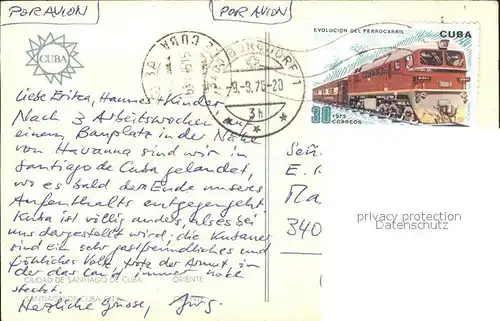 POR AVION
POR AVION
EVOLUCION DEL FERROCARRIL
CUBA
CUBA
CUBA
BURGDORF 1
-9.-8.76-20
3h
30
1975
CORREOS
Liebe Erika, Hannes + Kinder
Nach 3 Arbeitswochen auf
einem Bauplatz in der Nähe
von Havanna sind wir in
Santiago de Cuba gelandet,
wo es bald dem Ende unseres
Aufenthalts entgegengeht
Kuba ist völlig anders, als es bei
uns dargestellt wird; die Kubaner
sind ein sehr gastfreundliches und
fröhliches Volk, trotz der Armut in
der das Land immer noch
steckt.
Herzliche Grüsse, Jürg.
CIUDAD DE SANTIAGO DE CUBA ORIENTE
SANTIAGO DE CUBA CITY
Señ
E.
Ma
340
privacy protection
Datenschutz